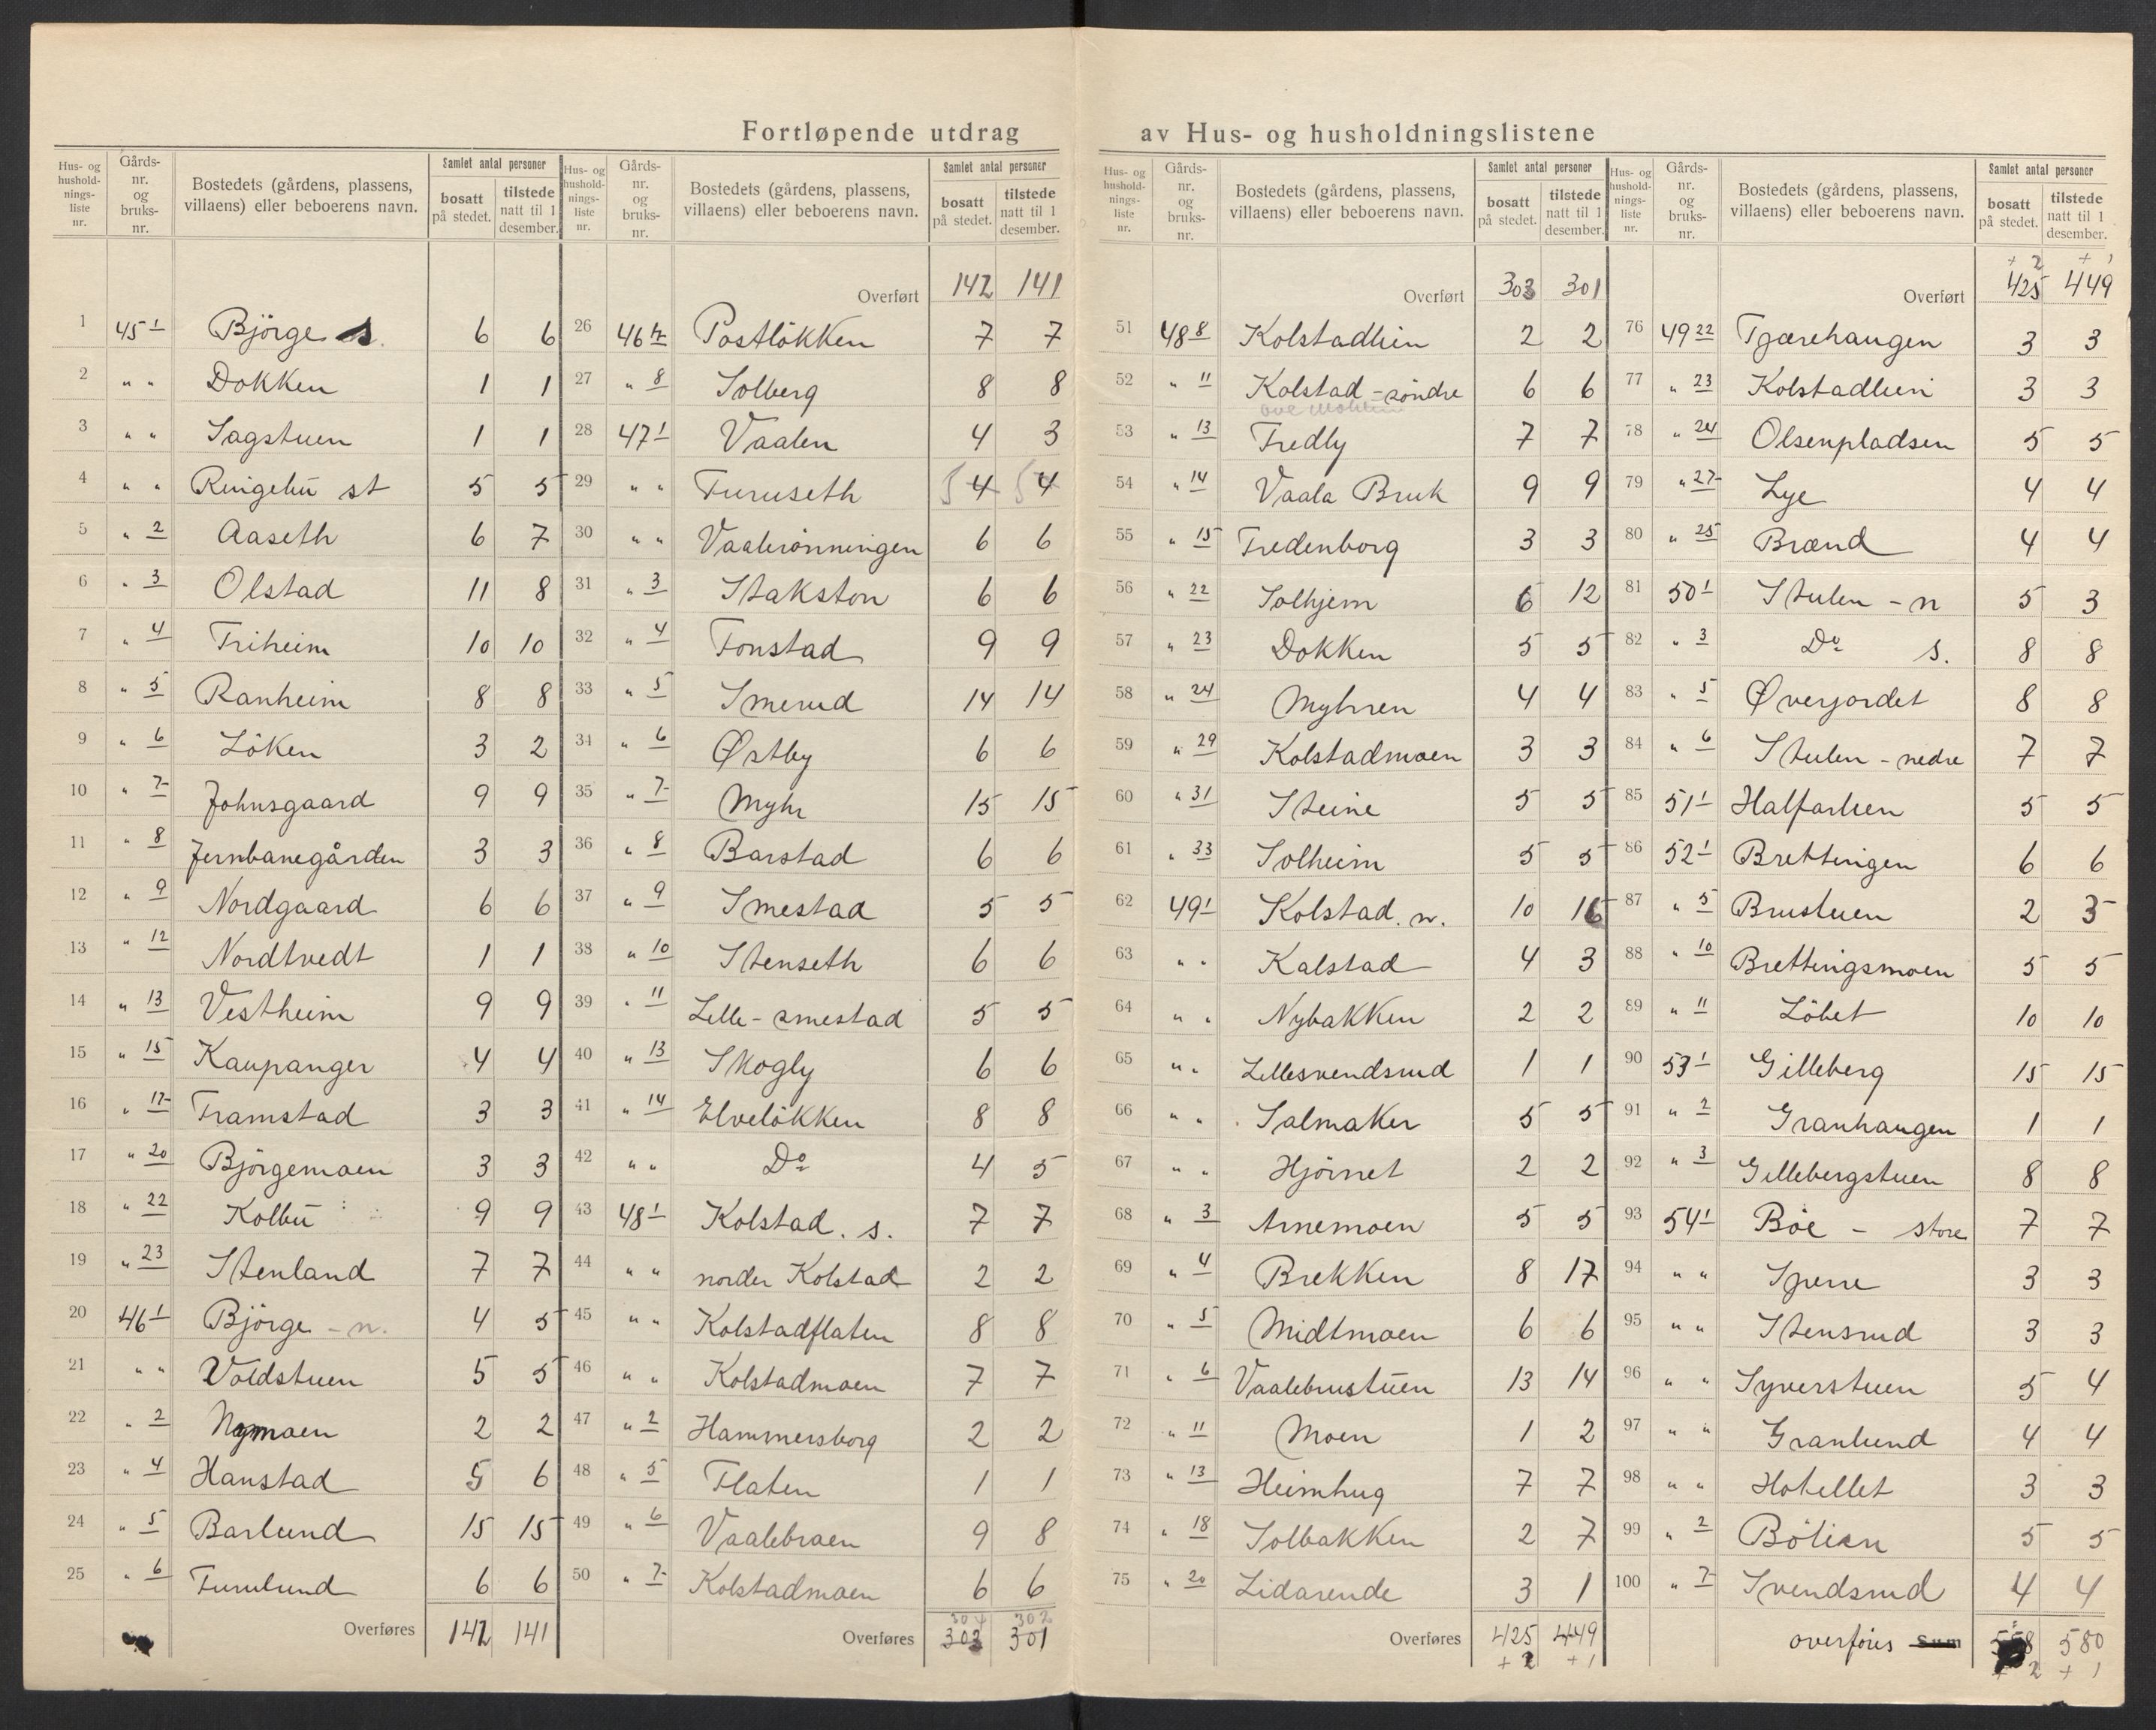 Fortløpende utdrag av Hus- og husholdningslistene
Hus- og husholdnings- liste nr. | Gårds- nr. og bruks- nr. | Bostedets (gårdens, plassens, villaens) eller beboerens navn. | Samlet antal personer | bosatt på stedet. | tilstede natt til 1 desember.
1 45 1 Björge s. 6 6
2 " " Dokken 1 1
3 " " Sagstuen 1 1
4 " " Ringebu st 5 5
5 " 2 Aaseth 6 7
6 " 3 Olstad 11 8
7 " 4 Triheim 10 10
8 " 5 Ranheim 8 8
9 " 6 Löken 3 2
10 " 7 Johnsgaard 9 9
11 " 8 Jernbanegården 3 3
12 " 9 Nordgaard 6 6
13 " 12 Nordtvedt 1 1
14 " 13 Vestheim 9 9
15 " 15 Kaupanger 4 4
16 " 17 Framstad 3 3
17 " 20 Björgemoen 3 3
18 " 22 Kolbu 9 9
19 " 23 Stenland 7 7
20 46 1 Björge - n. 4 5
21 " " Voldstuen 5 5
22 " 2 Nymoen 2 2
23 " 4 Hanstad 5 6
24 " 5 Barlund 15 15
25 " 6 Furulund 6 6
Overføres 142 141
Hus- og husholdnings- liste nr. | Gårds- nr. og bruks- nr. | Bostedets (gårdens, plassens, villaens) eller beboerens navn. | Samlet antal personer | bosatt på stedet. | tilstede natt til 1 desember.
Overført 142 141
26 46 7 Postlökken 7 7
27 " 8 Solberg 8 8
28 47 1 Vaalen 4 3
29 " " Furuseth 5 4 5 4
30 " " Vaalerönningen 6 6
31 " 3 Stakston 6 6
32 " 4 Tonstad 9 9
33 " 5 Smerud 14 14
34 " 6 Østby 6 6
35 " 7 Myhr 15 15
36 " 8 Barstad 6 6
37 " 9 Smestad 5 5
38 " 10 Stenseth 6 6
39 " 11 Lille-smestad 5 5
40 " 13 Skogly 6 6
41 " 14 Elvelökken 8 8
42 " " Do 4 5
43 48 1 Kolstad. s. 7 7
44 " " norder Kolstad 2 2
45 " " Kolstadflaten 8 8
46 " " Kolstadmoen 7 7
47 " 2 Hammersborg 2 2
48 " 5 Flaten 1 1
49 " 6 Vaalebraen 9 8
50 " 7 Kolstadmoen 6 6
304 302
Overføres 303 301
Hus- og husholdnings- liste nr. | Gårds- nr. og bruks- nr. | Bostedets (gårdens, plassens, villaens) eller beboerens navn. | Samlet antal personer | bosatt på stedet. | tilstede natt til 1 desember.
Overført 303 301
51 48 8 Kolstadlien 2 2
52 " 11 Kolstad - söndre 6 6
53 " 13 Fredly 7 7
54 " 14 Vaala Bruk 9 9
55 " 15 Fredenborg 3 3
56 " 22 Solhjem 6 12
57 " 23 Dokken 5 5
58 " 24 Myhren 4 4
59 " 29 Kolstadmoen 3 3
60 " 31 Steine 5 5
61 " 33 Solheim 5 5
62 49 1 Kolstad. n. 10 16
63 " " Kalstad 4 3
64 " " Nybakken 2 2
65 " " Lillesvendsrud 1 1
66 " " Salmaker 5 5
67 " " Hjörnet 2 2
68 " 3 Arnemoen 5 5
69 " 4 Brekken 8 17
70 " 5 Midtmoen 6 6
71 " 6 Vaalebrustuen 13 14
72 " 11 Moen 1 2
73 " 13 Heimhug 7 7
74 " 18 Solbakken 2 7
75 " 20 Lidarende 3 1
Overføres 425 449
+ 2 + 1
Hus- og husholdnings- liste nr. | Gårds- nr. og bruks- nr. | Bostedets (gårdens, plassens, villaens) eller beboerens navn. | Samlet antal personer | bosatt på stedet. | tilstede natt til 1 desember.
+ 2 + 1
Overført 425 449
76 49 22 Tjærehaugen 3 3
77 " 23 Kolstadlien 3 3
78 " 24 Olsenpladsen 5 5
79 " 27 Lye 4 4
80 " 25 Brænd 4 4
81 50 1 Stulen - n 5 3
82 " 3 Do s. 8 8
83 " 5 Øverjordet 8 8
84 " 6 Stulen - nedre 7 7
85 51 1 Halfarlien 5 5
86 52 1 Brettingen 6 6
87 " 5 Brustuen 2 3
88 " 10 Brettingsmoen 5 5
89 " 11 Löbet 10 10
90 53 1 Gilleberg 15 15
91 " 2 Granhaugen 1 1
92 " 3 Gillebergstuen 8 8
93 54 1 Böe - store 7 7
94 " " Sperre 3 3
95 " " Stensrud 3 3
96 " " Syverstuen 5 4
97 " " Granlund 4 4
98 " " Hotellet 3 3
99 " 2 Bölien 5 5
100 " 7 Svendsrud 4 4
overføres Sum 558 580
+ 2 + 1